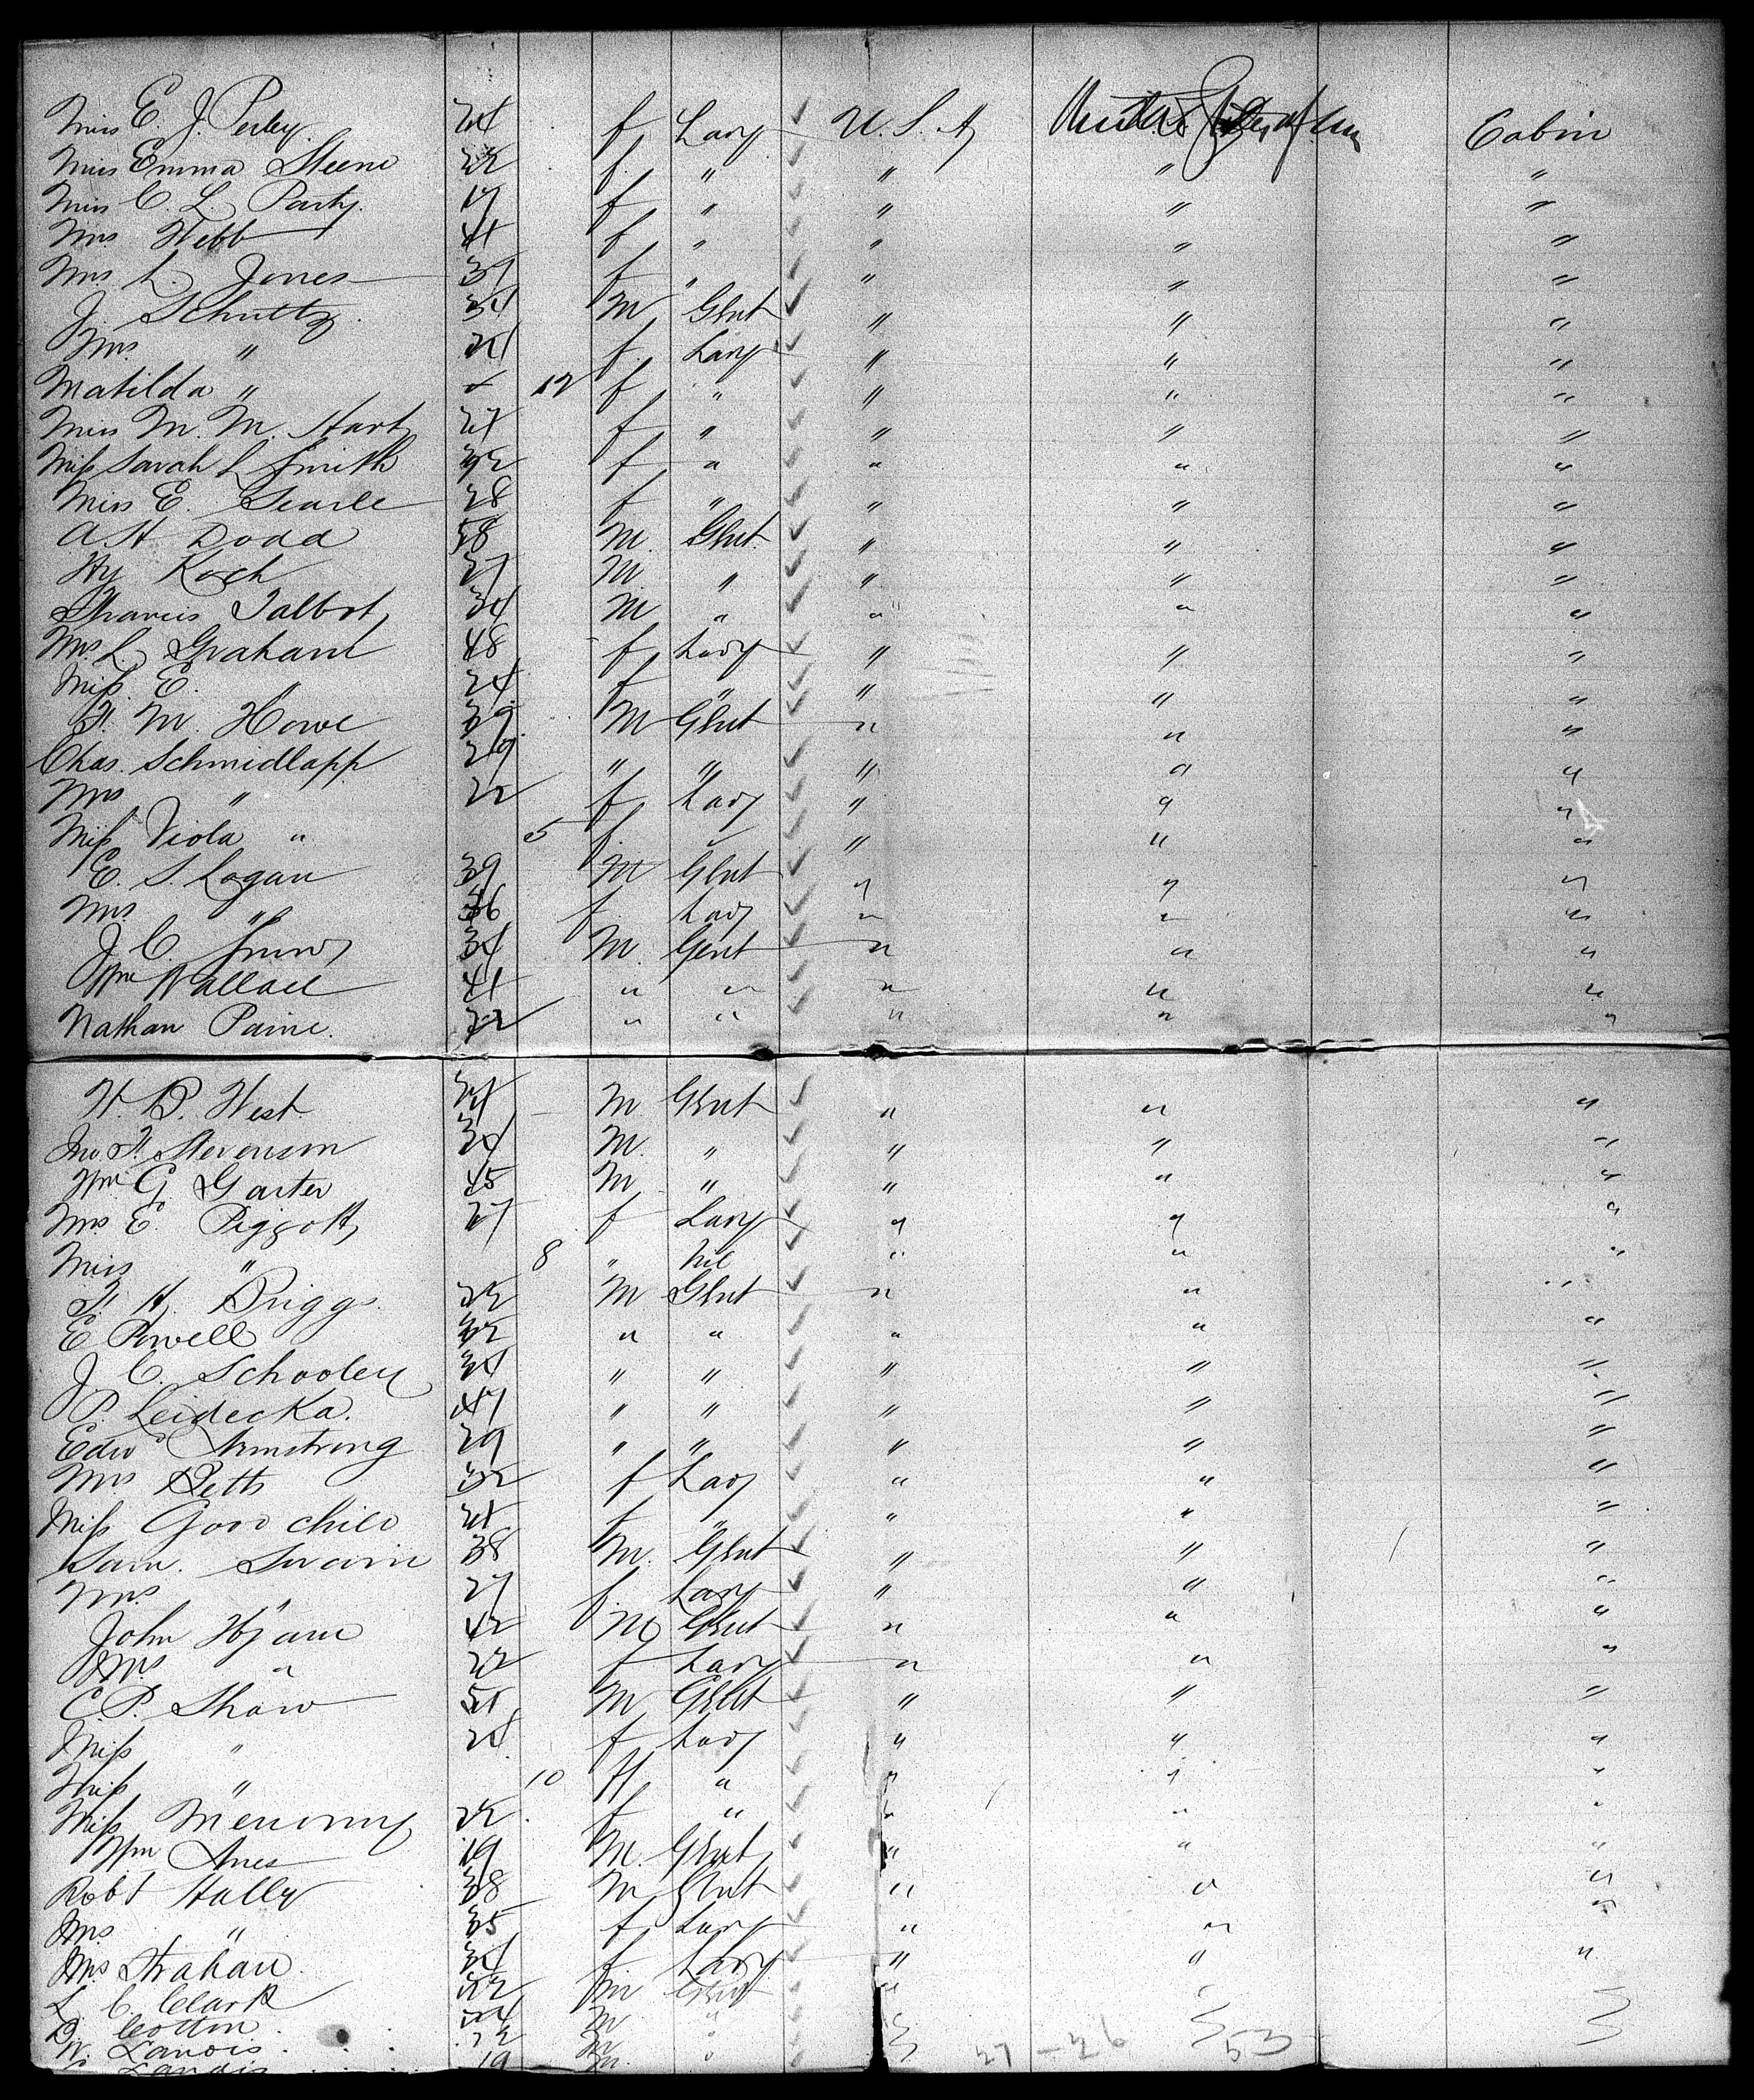 Miss E. J. Perley 24 f Lady U. S. A Cabin
Miss Emma Steene 22 f " " " "
Miss C. L. Party 19 f " " " "
Mrs Webb 41 f " " " "
Mrs L. Jones 39 f " " " "
J. Schultz 34 M Gent " " "
Mrs " f Lady " " "
Matilda " 12 f " " " "
Miss M. M. Hart f " " " "
Miss Sarah L Smith 32 f " " " "
Miss E. Searle 28 f " " " "
A. H Dodd 58 M. Gent. " " "
Hy Koch 27 M " " " "
Francis Talbot 34 M " " " "
Mrs L. Graham 48 f Lady " " "
Miss E. " 24 f " " " "
F. M. Howe 39 M Gent " " "
Chas. Schmidlapp 29 " " " " "
Mrs " 22 f Lady " " "
Miss Viola " 5 f. " " " "
E. S. Logan 39 M Gent " " "
Mrs " 36 f. Lady " " "
J. C. 34 M. Gent " " "
Wm Wallace 41 " " " " "
Nathan Paine. 22 " " " " "
H. B. West. M Gent " " "
Jno. F. Stevenson 34 M. " " " "
Wm G. Garter 45 M " " " "
Mrs E. Piggott 27 f Lady " " "
Miss " 8 " Nil " " "
F. H. Briggs. 32 M Gent " " "
E Powell 32 " " " " "
J. C. Schooley 34 " " " " "
P. Leidecka. 47 " " " " "
Edwd Armstrong 29 " " " " "
Mrs Betts 32 f Lady " " "
Miss Goodchild 21 f " " " "
Sam. Swain 38 M. Gent " " "
Mrs " 27 f. Lady " " "
John Hyam 42 M Gent " " "
Mrs " 22 f Lady " " "
C. P. Shaw 51 M Gent " " "
Miss " 28 f Lady " " "
Miss " 10 f " " " "
Miss 22 f " " " "
Wm Ames 19 M. Gent " " "
Robt Hally 38 M Gent " " "
Mrs " 35 f Lady " " "
Mrs Strahan 34 f Lady " " "
L. C. Clark M Gent "
D. Cotton M "
W. Landis 22 M "
Landis 19 M. "
27 - 26 53